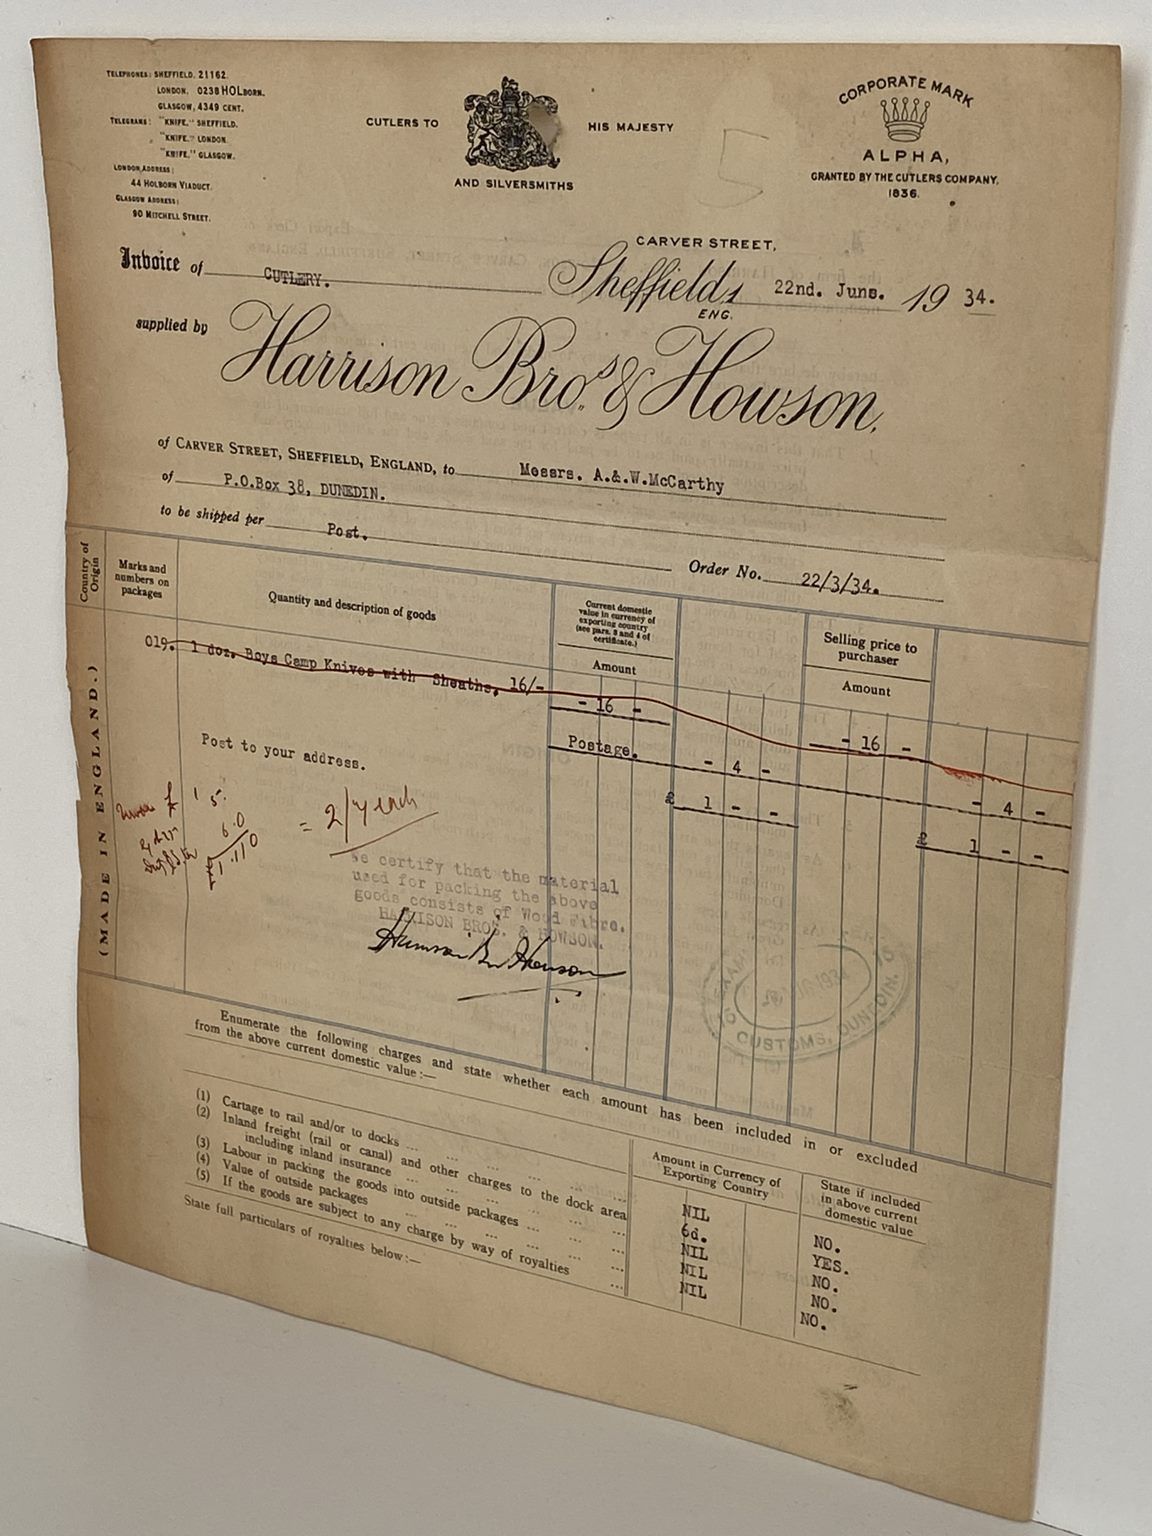 TELEPHONES: SHEFFIELD, 21162.
LONDON, 0238 HOLBORN.
GLASGOW, 4349 CENT.
TELEGRAMS: "KNIFE," SHEFFIELD.
"KNIFE," LONDON.
"KNIFE," GLASGOW.
LONDON ADDRESS:
44 HOLBORN VIADUCT.
GLASGOW ADDRESS:
90 MITCHELL STREET.
CUTLERS TO HIS MAJESTY
AND SILVERSMITHS
5
CORPORATE MARK
ALPHA,
GRANTED BY THE CUTLERS COMPANY,
1836.
CARVER STREET,
Invoice of CUTLERY. Sheffield, 22nd. June. 19 34.
ENG.
supplied by
Harrison Bros. & Howson.
of CARVER STREET, SHEFFIELD, ENGLAND, to Messrs. A.&.W.McCarthy
of P.O.Box 38, DUNEDIN.
to be shipped per Post.
Order No. 22/3/34.
Country of Origin
Marks and numbers on packages
Quantity and description of goods
Current domestic value in currency of exporting country (see pars. 3 and 4 of certificate.)
Amount
Selling price to purchaser
Amount
(MADE IN ENGLAND.)
019. 1 doz. Boys Camp Knives with Sheaths. 16/- - 16 - - 16 -
Post to your address. Postage. - 4 - - 4 -
£ 1 - - £ 1 - -
1 5.
6.0
£1.11.0
= 2/7 each
We certify that the material
used for packing the above
goods consists of Wood Fibre.
HARRISON BROS. & HOWSON.
Harrison Bros Howson
CUSTOMS, DUNEDIN.
Enumerate the following charges and state whether each amount has been included in or excluded
from the above current domestic value:—
Amount in Currency of Exporting Country
State if included in above current domestic value
(1) Cartage to rail and/or to docks ... NIL NO.
(2) Inland freight (rail or canal) and other charges to the dock area
including inland insurance ... 6d. YES.
(3) Labour in packing the goods into outside packages ... NIL NO.
(4) Value of outside packages ... NIL NO.
(5) If the goods are subject to any charge by way of royalties ... NIL NO.
State full particulars of royalties below:—